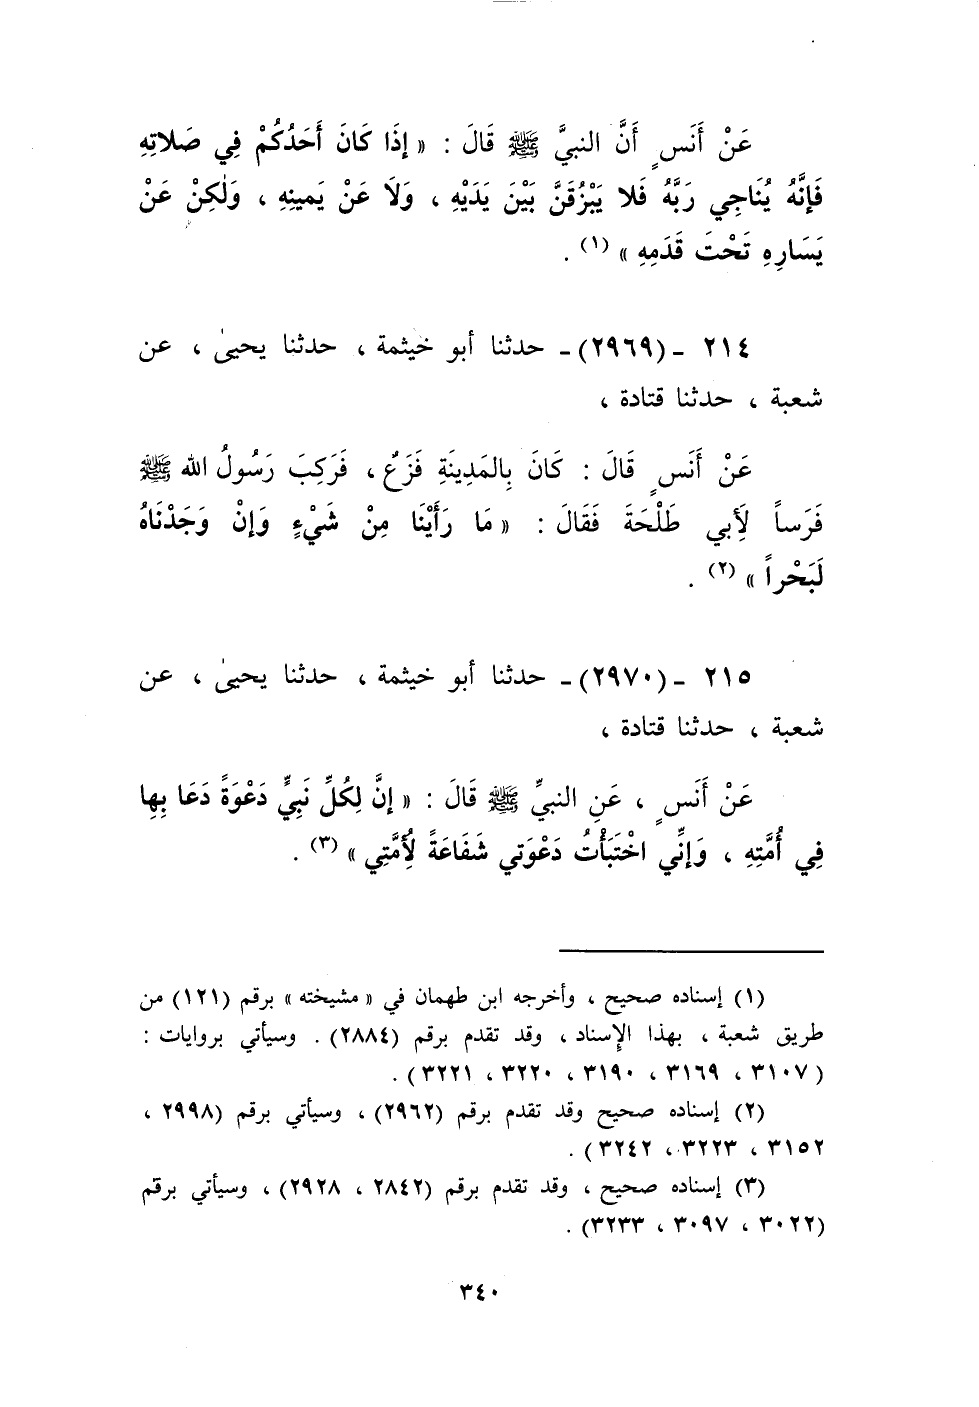 عَنْ أَنَسٍ أَنَّ النبيَّ ﷺ قَالَ : « إِذَا كَانَ أَحَدُكُمْ فِي صَلاتِهِ
فَإِنَّهُ يُنَاجِي رَبَّهُ فَلا يَبْزُقَنَّ بَيْنَ يَدَيْهِ ، وَلَا عَنْ يَمينِهِ ، وَلٰكِنْ عَنْ
يَسَارِهِ تَحْتَ قَدَمِهِ » (١) .
٢١٤ ـ (٢٩٦٩) ـ حدثنا أبو خيثمة ، حدثنا يحيىٰ ، عن
شعبة ، حدثنا قتادة ،
عَنْ أَنَسٍ قَالَ : كَانَ بِالمَدِينَةِ فَزَعٌ ، فَرَكِبَ رَسُولُ الله ﷺ
فَرَساً لِأَبي طَلْحَةَ فَقَالَ : « مَا رَأَيْنَا مِنْ شَيْءٍ وَإِنْ وَجَدْنَاهُ
لَبَحْراً » (٢) .
٢١٥ ـ (٢٩٧٠) ـ حدثنا أبو خيثمة ، حدثنا يحيىٰ ، عن
شعبة ، حدثنا قتادة ،
عَنْ أَنَسٍ ، عَنِ النبيِّ ﷺ قَالَ : « إِنَّ لِكُلِّ نَبِيٍّ دَعْوَةً دَعَا بِهِا
فِي أُمَّتِهِ ، وَإِنِّي اخْتَبَأْتُ دَعْوَتي شَفَاعَةً لُأِمَّتِي » (٣) .
(١) إسناده صحيح ، وأخرجه ابن طهمان في « مشيخته » برقم (١٢١) من
طريق شعبة ، بهذا الإسناد ، وقد تقدم برقم (٢٨٨٤) . وسيأتي بروايات :
(٣١٠٧ ، ٣١٦٩ ، ٣١٩٠ ، ٣٢٢٠ ، ٣٢٢١) .
(٢) إسناده صحيح وقد تقدم برقم (٢٩٦٢) ، وسيأتي برقم (٢٩٩٨ ،
٣١٥٢ ، ٣٢٢٣ ، ٣٢٤٢) .
(٣) إسناده صحيح ، وقد تقدم برقم (٢٨٤٢ ، ٢٩٢٨) ، وسيأتي برقم
(٣٠٢٢ ، ٣٠٩٧ ، ٣٢٣٣) .
٣٤٠